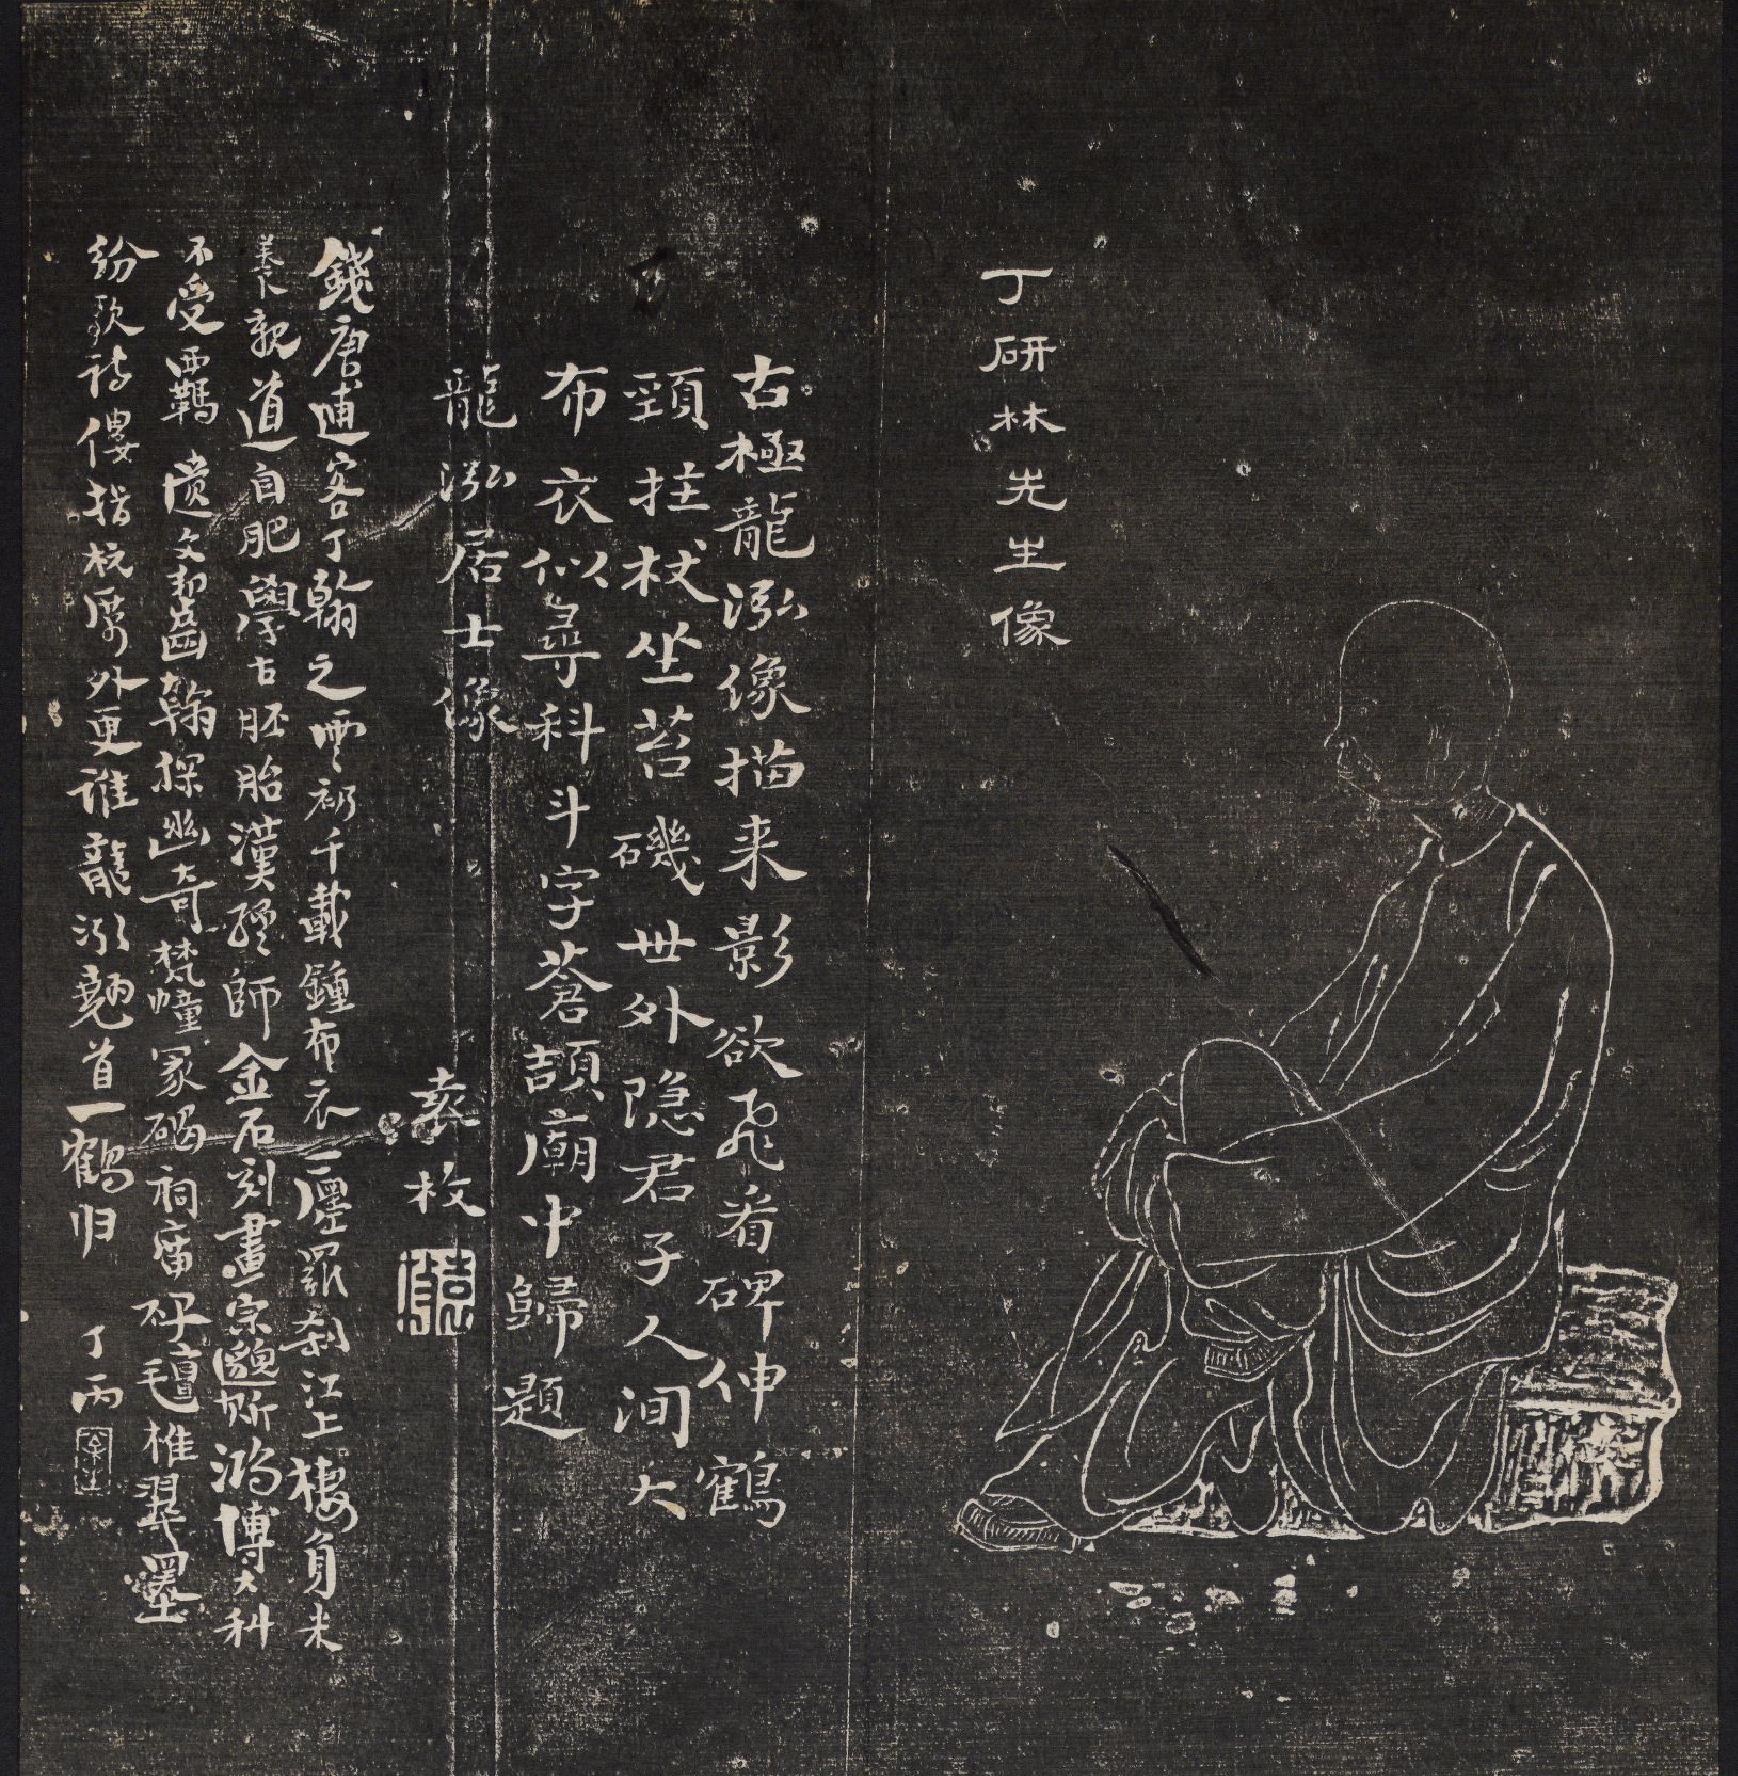 丁研林先生像
古極龍泓像描来影欲飛看碑伸鶴
頸拄杖坐苔磯世外隐君子人间大
布衣似尋科斗字蒼頡廟中歸題
龍泓居士像
袁枚
錢唐逋客丁翰之雲礽千載鍾布衣一廛羅刹江上棲負米
養親道自肥學古胚胎漢經師金石刻畫宗邈斯鴻博大科
不受羈遺文齧翰探幽奇梵幢冢碣祠庙碑氊椎翠墨
紛歌詩僂指杭厲外更谁龍泓翹首一鶴归
丁丙